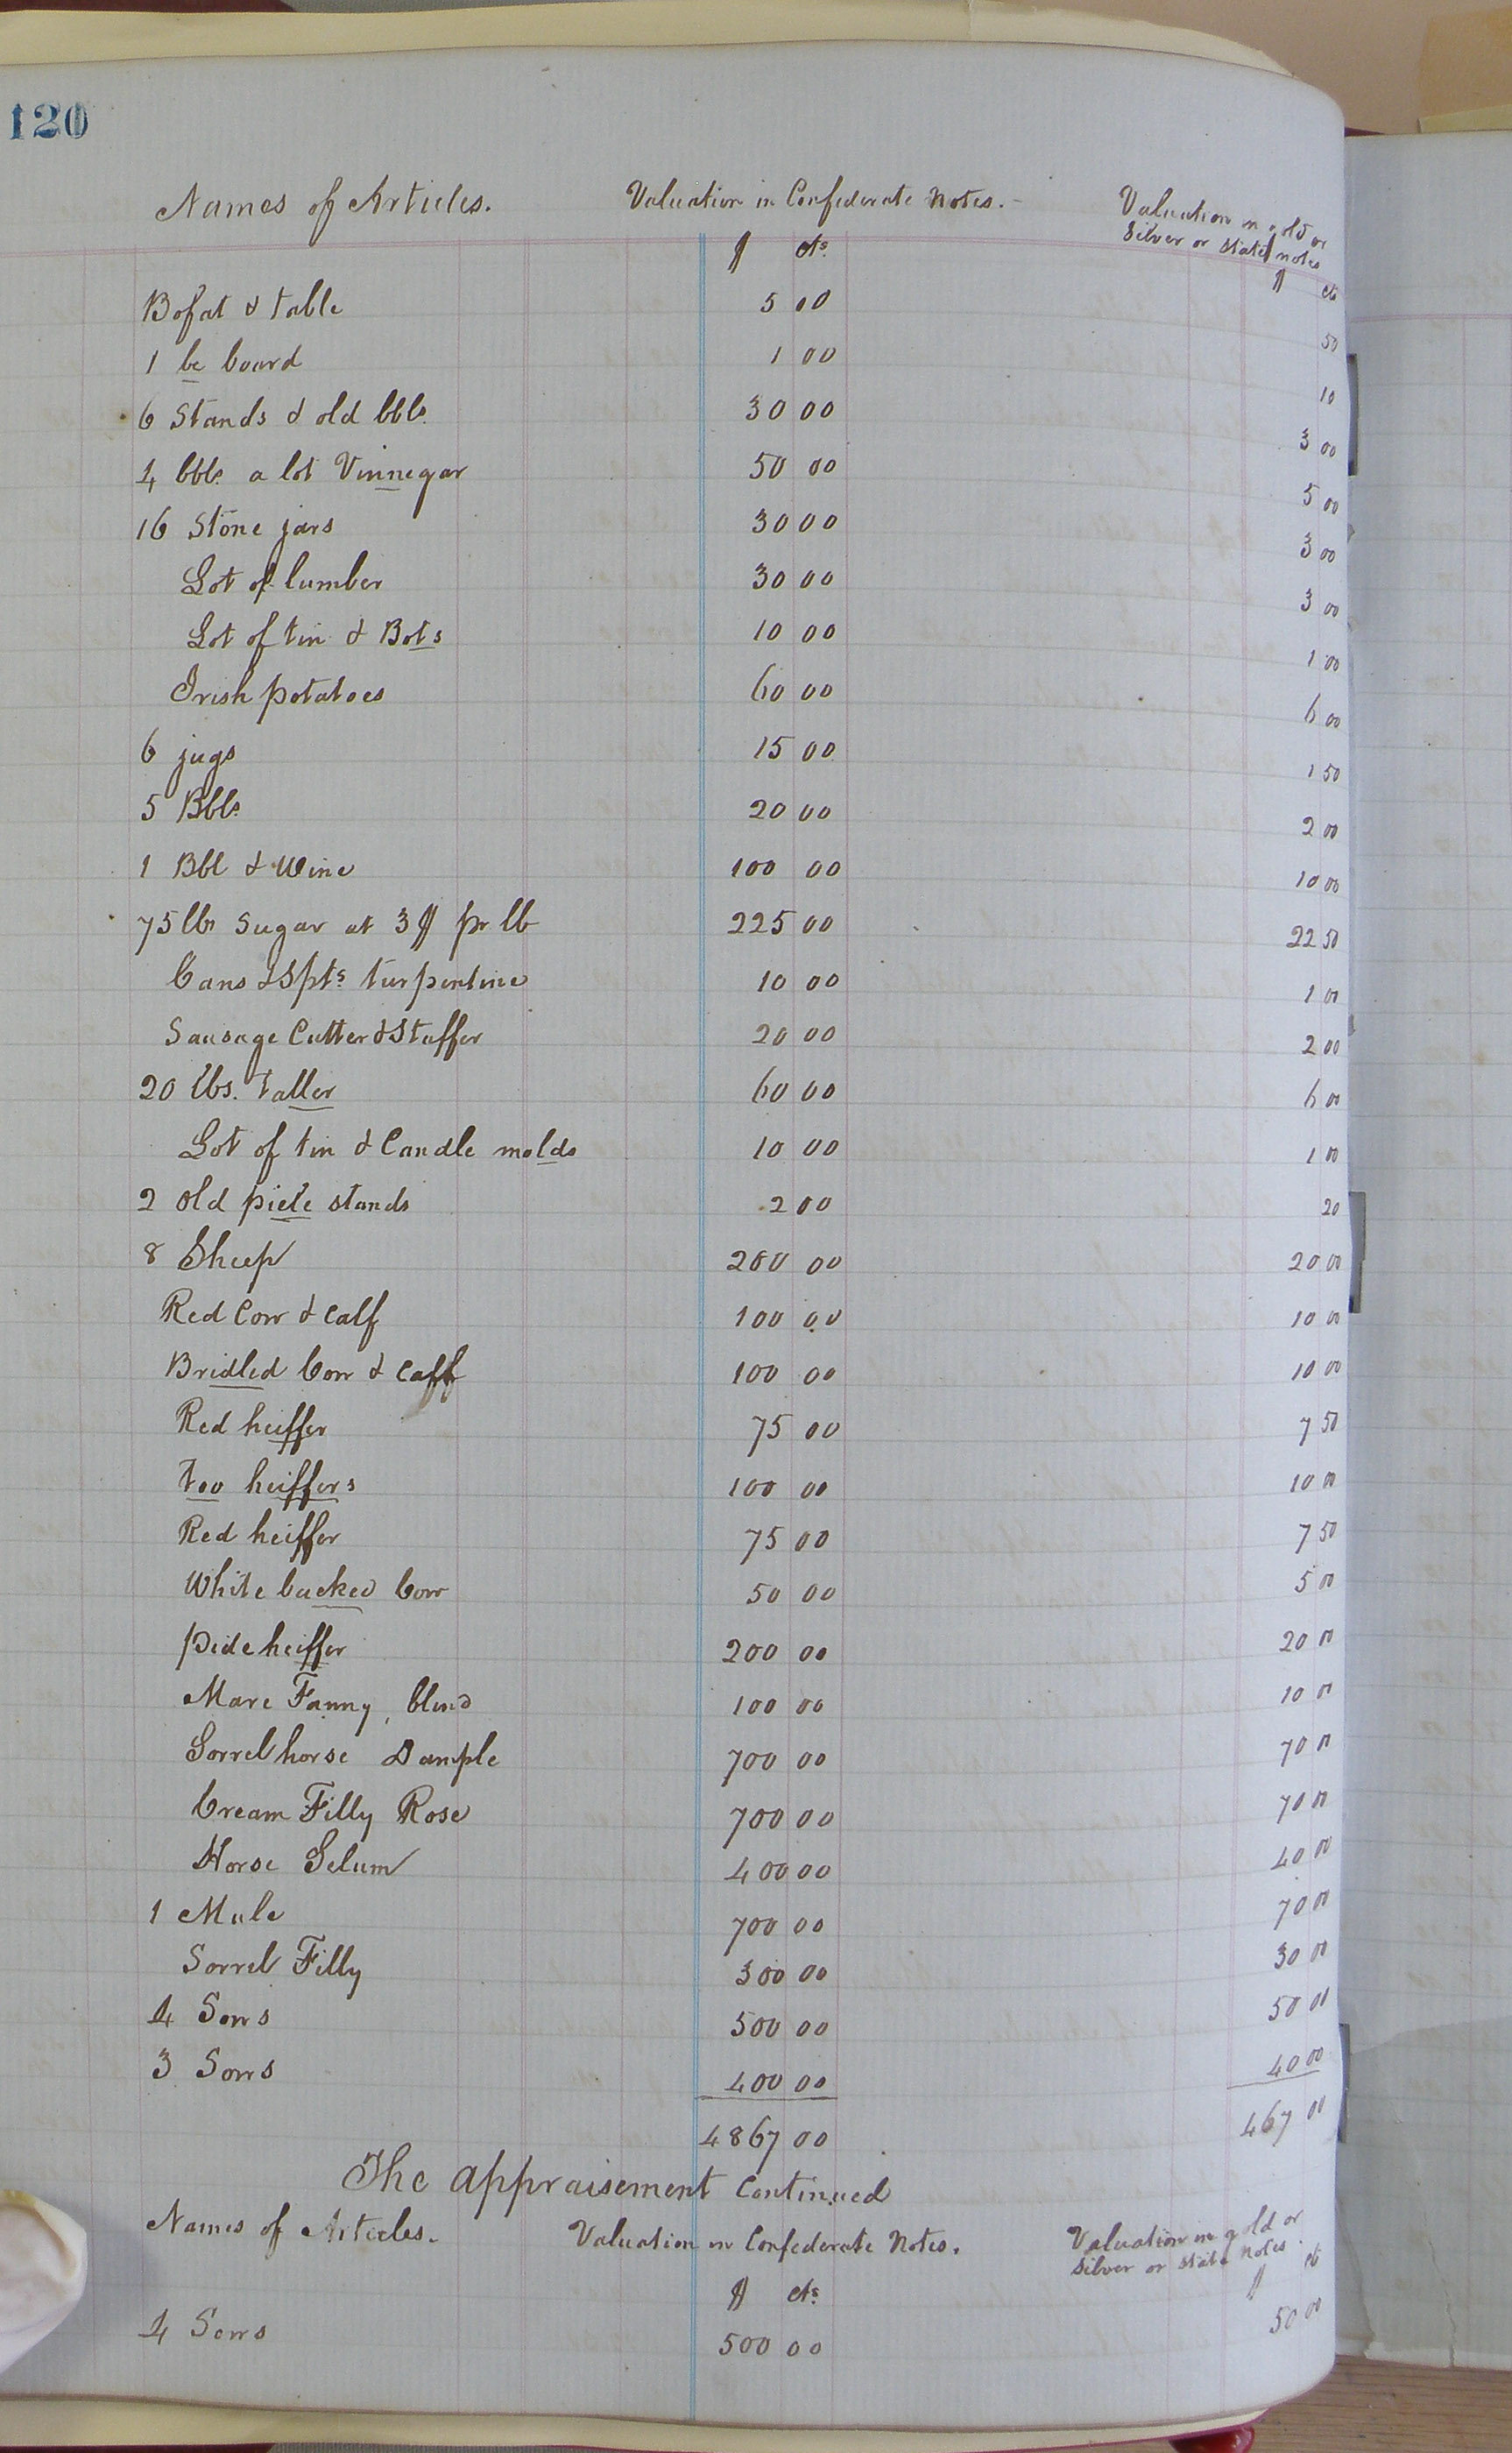 120
Names of Articles. Valuation in Confederate Notes. Valuation in gold or
Silver or State notes
$ cts. $ cts
Bofat & table 5 00 50
1 be board 1 00 10
6 Stands & old bbls. 30 00 3 00
4 bbls a lot Vinnegar 50 00 5 00
16 Stone jars 30 00 3 00
Lot of lumber 30 00 3 00
Lot of tin & Bots 10 00 1 00
Irish potatoes 60 00 6 00
6 jugs 15 00 1 50
5 Bbls 20 00 2 00
1 Bbl & Wine 100 00 10 00
75 lbs Sugar at 3$ pr lb 225 00 22 50
Cans & Spts turpentine 10 00 1 00
Sausage Cutter & Stuffer 20 00 2 00
20 lbs. taller 60 00 6 00
Lot of tin & Candle molds 10 00 1 00
2 old stands 2 00 20
8 Sheep 200 00 20 00
Red Cow & Calf 100 00 10 00
Bridled Cow & Caff 100 00 10 00
Red heiffer 75 00 7 50
too heiffers 100 00 10 00
Red heiffer 75 00 7 50
White backed Cow 50 00 5 00
pide heiffer 200 00 20 00
Mare Fanny, blind 100 00 10 00
Sorrel horse Dample 700 00 70 00
Cream Filly Rose 700 00 70 00
Horse Selum 400 00 40 00
1 Mule 700 00 70 00
Sorrel Filly 300 00 30 00
4 Sows 500 00 50 00
3 Sows 400 00 40 00
4867 00 467 00
The appraisement Continued
Names of Articles. Valuation in Confederate Notes. Valuation in gold or
Silver or State Notes.
$ cts $ cts
4 Sows 500 00 50 00